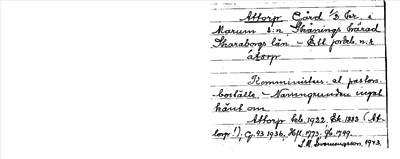 Attorp Gård 1/3 Fr. i
Marum s:n, Skånings härad
Skaraborgs län. - Ett fordl. n.r
åtorp
Komministers- el. pastors-
boställe. - Namngrunden inget
känt om
Attorp feb. 1922. Ek. 1883 (At-
torp!), G. 93 1936, Hfl. 1773, Gb. 1799.
S. M. Svenungsson, 1943.